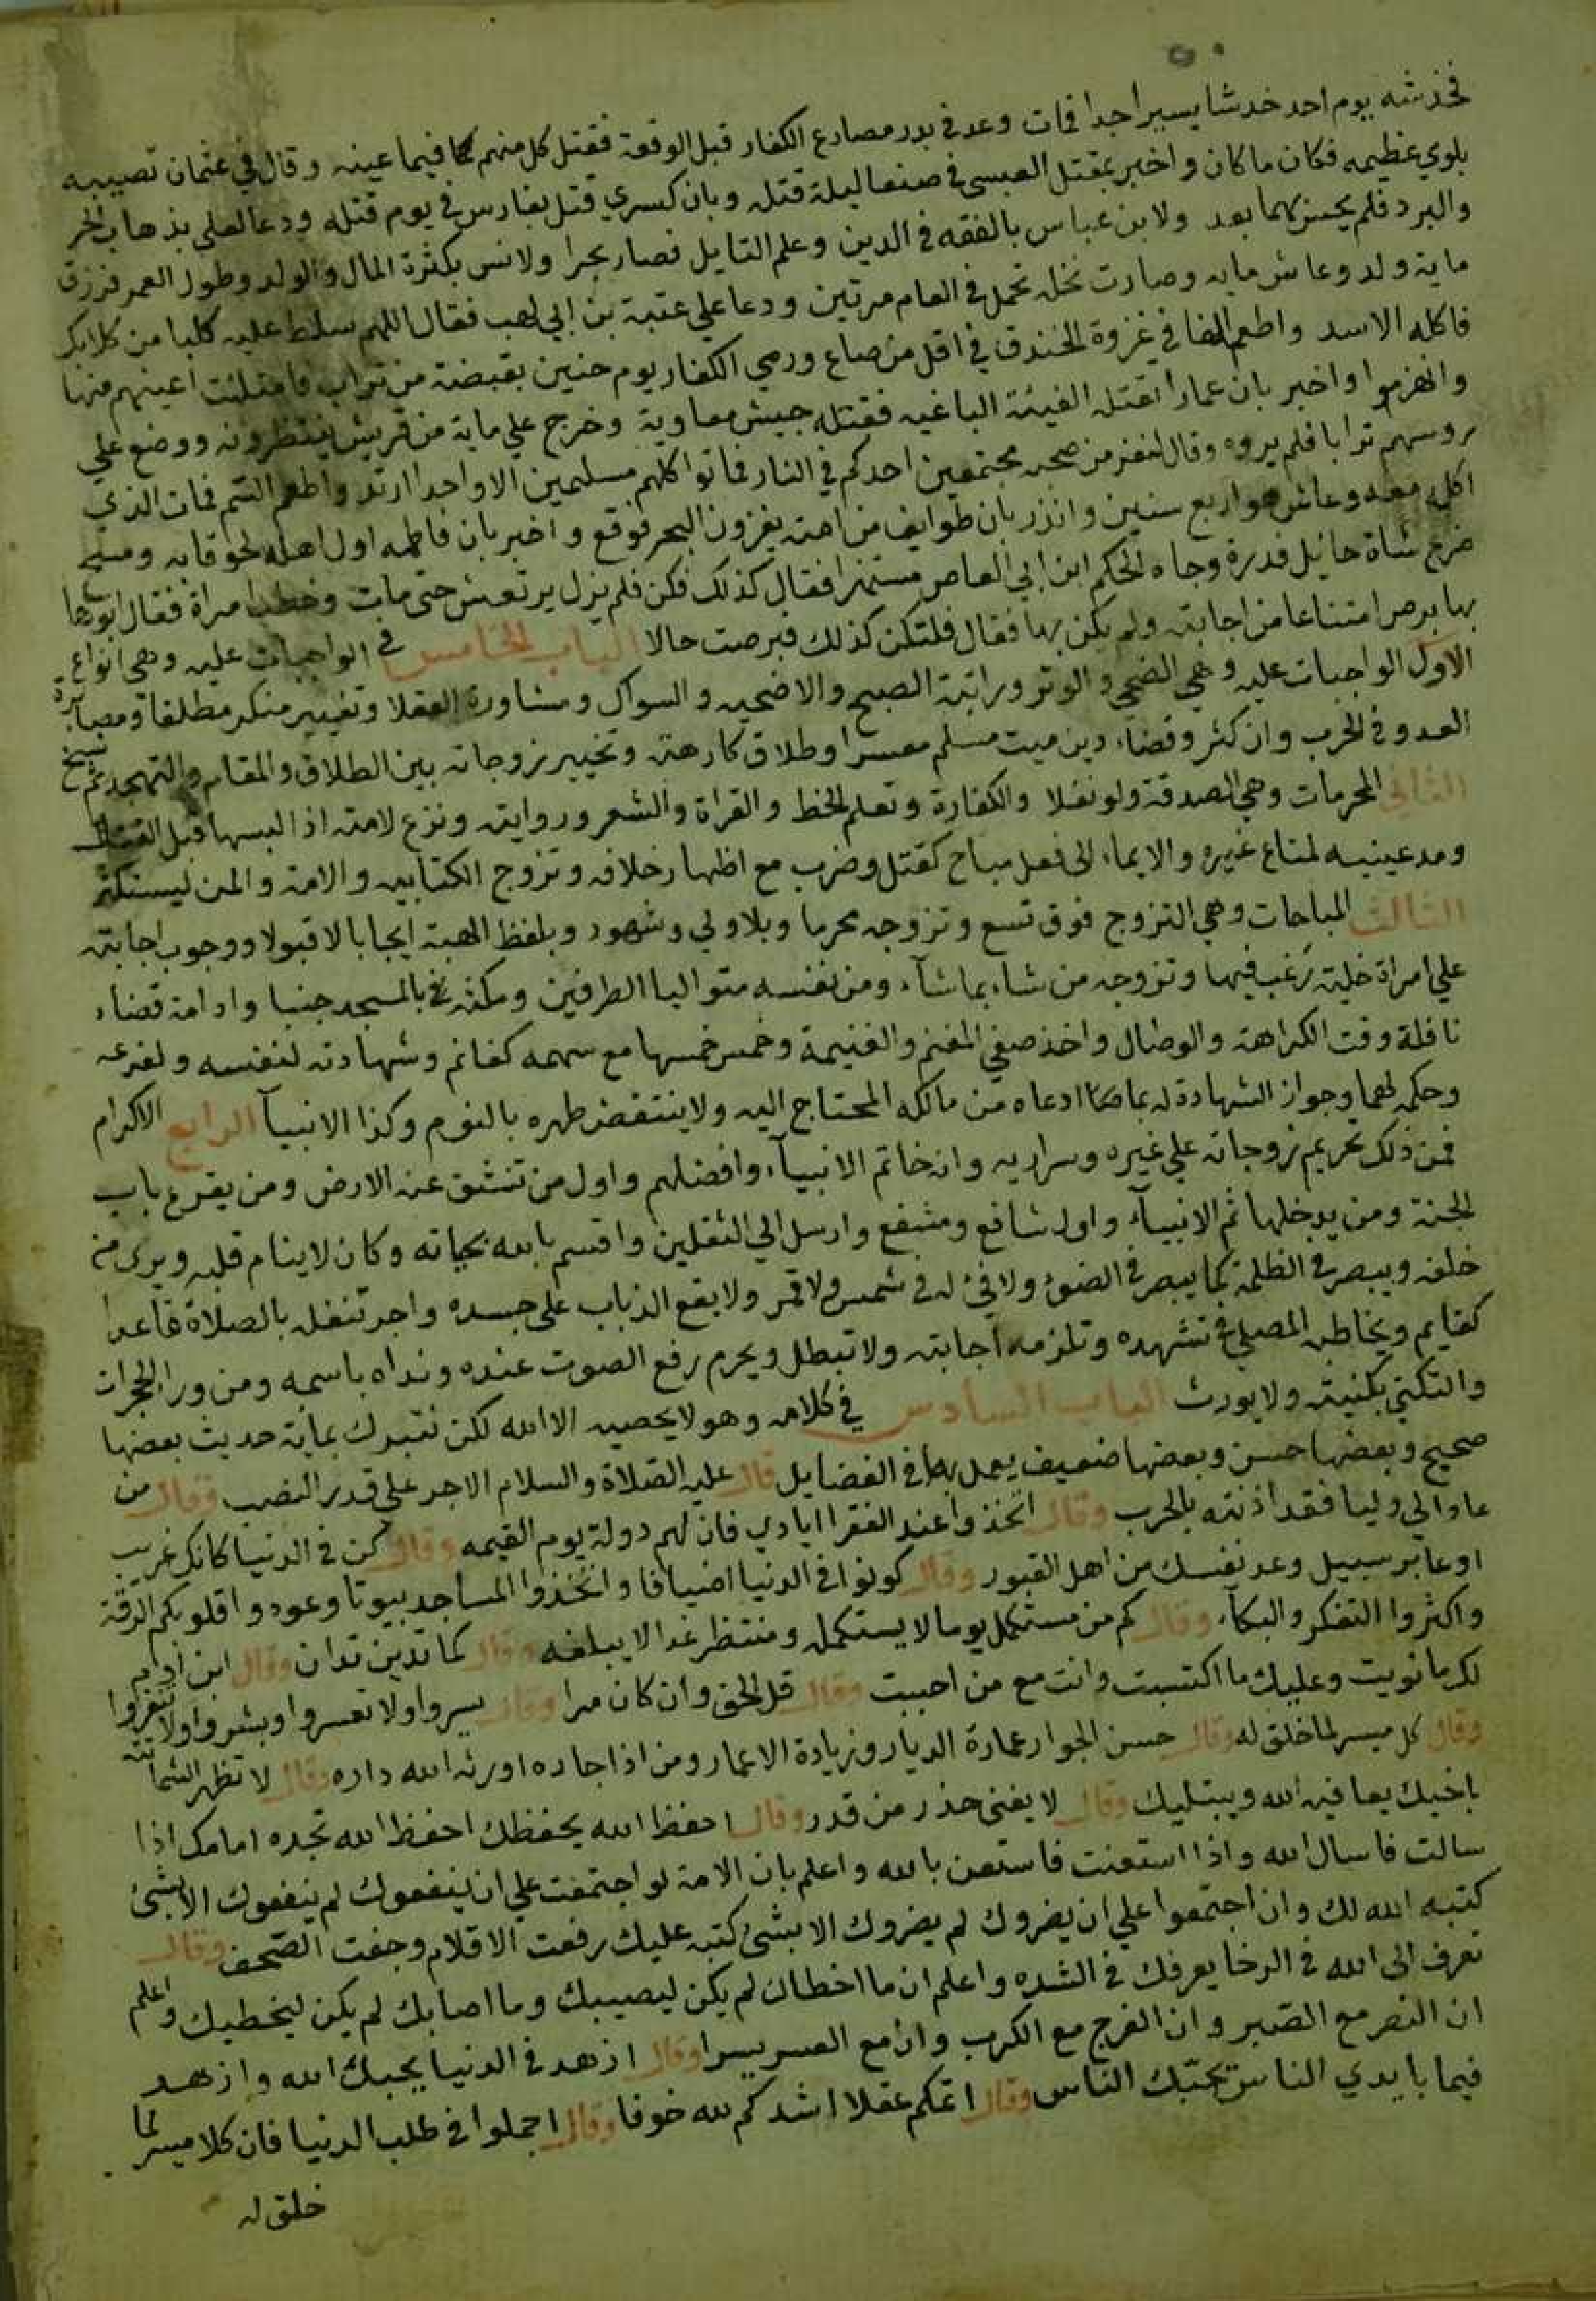 فخدشه يوم احد خدشا يسيرا جدا فمات وعد في بدر مصارع الكفار قبل الوقعة فقتل كل منهم كما فيما عينه وقال في عثمان تصيبه
بلوي عظيمه فكان ما كان واخبر بمقتل العبسي في صنعا ليلة قتله وبان كسري قتل بفارس في يوم قتله ودعا لعلي بذهاب الحر
والبرد فلم يحس بهما بعد ولابن عباس بالفقه في الدين وعلم التايل فصار بحرا ولانس بكثرة المال والولد وطول العمر فرزق
ماية ولد وعاش مايه وصارت نخله تحمل في العام مرتين ودعا علي عتبة بن ابي لهب فقال اللهم سلط عليه كلبا من كلابك
فاكله الاسد واطعم الفا في غزوة الخندق في اقل من صاع ورمي الكفار يوم حنين بقبضة من تراب فامتلئت اعينهم منها
وانهزموا واخبر بان عمارا تقتله الفيئة الباغيه فقتله جيش معاوية وخرج علي ماية من قريش ينتظرونه ووضع علي
روسهم ترابا فلم يروه وقال لنفر من صحبه مجتمعين احدكم في النار فماتوا كلهم مسلمين الا واحدا ارتد واطعم السم فمات الذي
اكل معه وعاش هو اربع سنين وانذر بان طوايف من امته يغزون البحر فوقع واخبر بان فاطمه اول اهله لحوقا به ومسح
ضرع شاة حائل فدرة وجاه الحكم ابن ابي العاص مستهزا فقال كذلك فكن فلم يزل يرتعش حتى مات وخطب امراة فقال ابوها
بها برص امتناعا من اجابته ولم يكن بها فقال فلتكن كذلك فبرصت حالا الباب الخامس في الواجبات عليه وهي انواع
الاول الواجبات عليه وهي الضحي والوتر وراتبة الصبح والاضحيه والسواك ومشاورة العقلا وتغيير منكر مطلقا ومصابرة
العدو في الحرب وان كثر وقضاء دين ميت مسلم معسرا وطلاق كارهته وتخيير زوجاته بين الطلاق والمقام والتهجد ثم نسخ
الثاني المحرمات وهي الصدقة ولو نفلا والكفارة وتعلم الخط والقراة والشعر وروايته ونزع لامته اذا لبسها قبل القتال
ومد عينيه لمتاع غيره والايماء الى فعل مباح كقتل وضرب مع اظهار خلافه وتزوج الكتابيه والامة والمن ليستكثر
الثالث المباحات وهي التزوج فوق تسع وتزوجه محرما وبلا ولي وشهود وبلفظ الهبة ايجابا لا قبولا ووجوب اجابته
علي امراة خلية رغب فيها وتزوجه من شاء بما شآء ومن نفسه متواليا الطرفين ومكثه بالمسجد جنبا وادامة قضاء
نافلة وقت الكراهة والوصال واخذ صفي المغنم والغنيمة وخمس خمسها مع سهمه كغانم وشهادته لنفسه ولفرعه
وحكمه لهما وجواز الشهادة له بما ادعاه من مالكه المحتاج اليه ولا ينتقض طهره بالنوم وكذا الانبيآ الرابع الاكرام
فمن ذلك تحريم زوجاته علي غيره وسراريه وانه خاتم الانبيآء وافضلهم واول من تنشق عنه الارض ومن يقرع باب
الجنة ومن يدخلها ثم الانبيآء واول شافع ومشفع وارسل الي الثقلين واقسم بالله بحياته وكان لا ينام قلبه ويرى من
خلفه ويبصر في الظلمة كما يبصر في الضوء ولا فيء له في شمس ولا قمر ولا يقع الذباب على جسده واجر تنفله بالصلاة قاعدا
كقايم ويخاطبه المصلي في تشهده وتلزمه اجابته ولا تبطل ويحرم رفع الصوت عنده ونداه باسمه ومن ورا الحجرات
والتكني بكنيته ولا يورث الباب السادس في كلامه وهو لا يحصيه الا الله لكن نتبرك بماية حديث بعضها
صحيح وبعضها حسن وبعضها ضعيف يعمل بها في الفضايل قال عليه الصلاة والسلام الاجر على قدر النصب وقال من
عادا لي وليا فقد اذنته بالحرب وقال اتخذوا عند الفقرا ايادي فان لهم دولة يوم القيمه وقال كن في الدنيا كانك غريب
او عابر سبيل وعد نفسك من اهل القبور وقال كونوا في الدنيا اضيافا واتخذوا المساجد بيوتا وعودوا قلوبكم الرقة
واكثروا التفكر والبكآء وقال كم من مستكمل يوما لا يستكمله ومنتظر غدا لا يبلغه وقال كما تدين تدان وقال ابن ادم
لك ما نويت وعليك ما اكتسبت وانت مع من احببت وقال قل الحق وان كان مرا وقال يسروا ولا تعسروا وبشروا ولا تنفروا
وقال كل ميسر لما خلق له وقال حسن الجوار عمارة الديار وزيادة الاعمار ومن اذا جاره اورثه الله داره وقال لا تظهر الشماتة
باخيك يعافيه الله ويبتليك وقال لا يغنى حذر من قدر وقال احفظ الله يحفظك احفظ الله تجده امامك اذا
سالت فاسال الله واذا استعنت فاستعن بالله واعلم بان الامة لو اجتمعت علي ان ينفعوك لم ينفعوك الا بشئ
كتبه الله لك وان اجتمعوا علي ان يضروك لم يضروك الا بشئ كتبه عليك رفعت الاقلام وجفت الصحف وقال
تعرف الى الله في الرخا يعرفك في الشده واعلم ان ما اخطاك لم يكن ليصيبك وما اصابك لم يكن ليخطيك واعلم
ان النصر مع الصبر وان الفرج مع الكرب وان مع العسر يسرا وقال ازهد في الدنيا يحبك الله وازهد
فيما بايدي الناس يحبك الناس وقال اتمكم عقلا اشدكم لله خوفا وقال اجملوا في طلب الدنيا فان كلا ميسر لما
خلق له